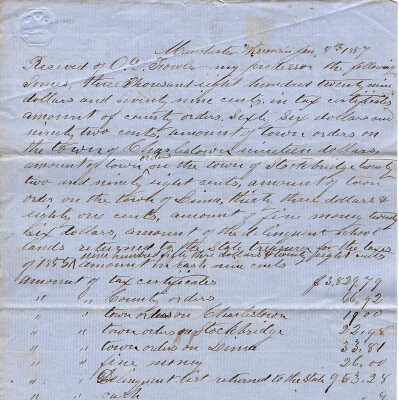 Manchester Wisconsin Jan 8th 1857
Received of O. D. Fowler my predecessor the following
Sums, three thousand eight hundred twenty nine
dollars and seventy nine cents, in tax certificates
amount of county orders, sixty six dollars and
ninety two cents amount of town orders on
the town of Charlestown nineteen dollars,
amount of town order on the town of Stockbridge twenty
two and ninety eight cents, amount of town
order on the town of Dima, thirty three dollars &
eighty one cents, amount of fine money twenty
six dollars, amount of the delinquent School
lands returned to the State treasurer for the taxes
nine hundred fifty three dollars & twenty eight cents
of 1855 amount in cash nine cents
amount of tax certificates $3,829,79
" " County orders 66,92
" " town orders on Charlestown 19 00
" " town orders on Stockbridge 22,98
" " town orders on Dima 33,81
" " fine money 26,00
" " Delinquent list returned to the State 953,28
" " cash